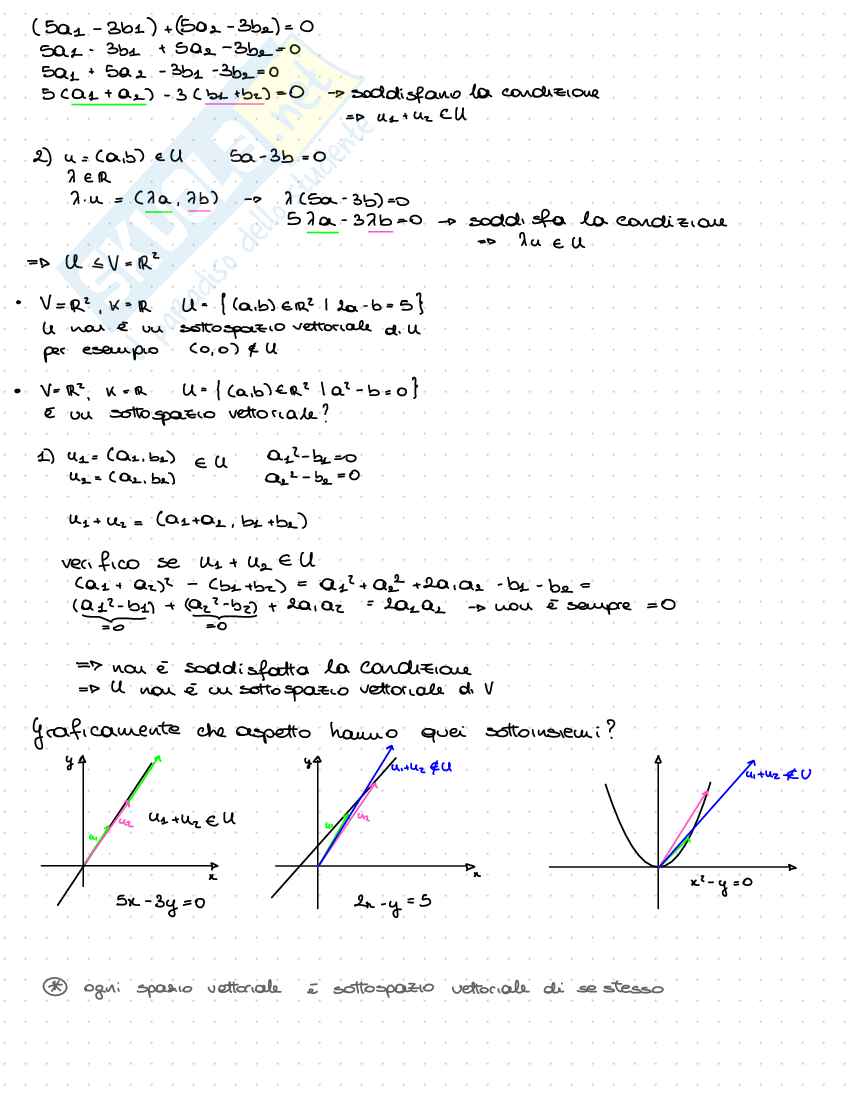 (5a1 - 3b1) + (5a2 - 3b2) = 0
5a1 - 3b1 + 5a2 - 3b2 = 0
5a1 + 5a2 - 3b1 - 3b2 = 0
5(a1 + a2) - 3(b1 + b2) = 0 → soddisfano la condizione
⇒ u1 + u2 ⊂ U
2) u = (a,b) ∈ U 5a - 3b = 0
λ ∈ ℝ
λ·u = (λa, λb) → λ(5a - 3b) = 0
5λa - 3λb = 0 → soddisfa la condizione
⇒ λu ∈ U
⇒ U ≤ V = ℝ²
• V = ℝ², K = ℝ U = {(a,b) ∈ ℝ² | 2a - b = 5}
U non è un sottospazio vettoriale di U
per esempio (0,0) ∉ U
• V = ℝ², K = ℝ U = {(a,b) ∈ ℝ² | a² - b = 0}
è un sottospazio vettoriale?
1) u1 = (a1, b1) ∈ U a1² - b1 = 0
u2 = (a2, b2) a2² - b2 = 0
u1 + u2 = (a1 + a2, b1 + b2)
verifico se u1 + u2 ∈ U
(a1 + a2)² - (b1 + b2) = a1² + a2² + 2a1a2 - b1 - b2 =
(a1² - b1) + (a2² - b2) + 2a1a2 = 2a1a2 → non è sempre = 0
= 0 = 0
⇒ non è soddisfatta la condizione
⇒ U non è un sottospazio vettoriale di V
Graficamente che aspetto hanno quei sottoinsiemi?
y
u1
u2
u1 + u2 ∈ U
x
5x - 3y = 0
y
u1 + u2 ∉ U
u1
u2
x
2x - y = 5
u1 + u2 ∉ U
x² - y = 0
⊛ ogni spazio vettoriale è sottospazio vettoriale di se stesso
SKUOLA.net
il paradiso dello studente